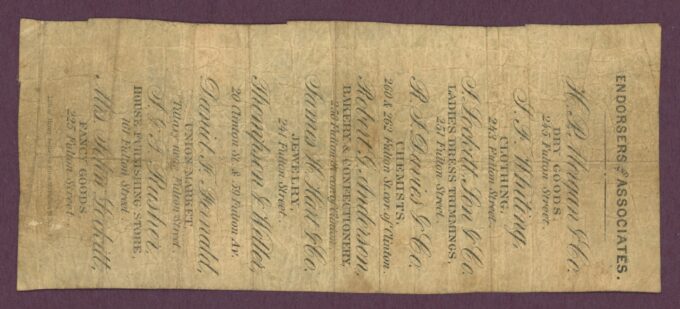 ENDORSERS & ASSOCIATES.
H. P. Morgan & Co.
DRY GOODS,
245 Fulton Street.
S. F. Whiting,
CLOTHING,
243 Fulton Street.
S. Lockitt, Son & Co.
LADIES DRESS TRIMMINGS,
251 Fulton Street.
R. J. Davies & Co.
CHEMISTS,
260 & 262 Fulton St. cor of Clinton
Robert G. Anderson,
BAKERY & CONFECTIONERY,
Fulton
James H. Hart & Co.
JEWELRY,
241 Fulton Street.
Thompson & Holler,
20 Clinton St. & 59 Fulton Av.
Daniel J. Fernald,
UNION MARKET,
Tillary near Fulton Street
S. & J. Rusher,
HOUSE FURNISHING STORE,
Fulton Street
Mrs. John Lockitt,
FANCY GOODS
225 Fulton Street.